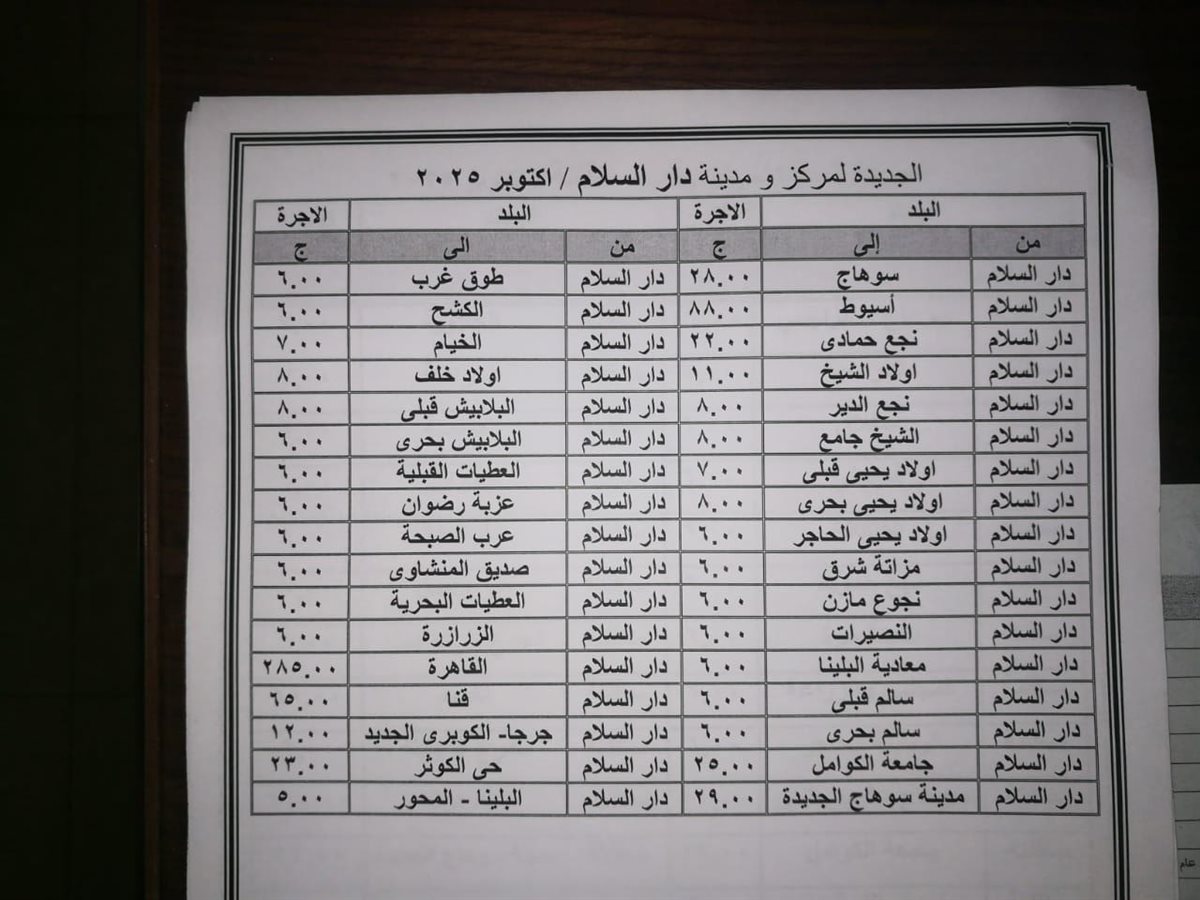 الجديدة لمركز و مدينة دار السلام / اكتوبر ٢٠٢٥
البلد الاجرة البلد الاجرة
من إلى ج من الى ج
دار السلام سوهاج ٢٨.٠٠ دار السلام طوق غرب ٦.٠٠
دار السلام أسيوط ٨٨.٠٠ دار السلام الكشح ٦.٠٠
دار السلام نجع حمادى ٢٢.٠٠ دار السلام الخيام ٧.٠٠
دار السلام اولاد الشيخ ١١.٠٠ دار السلام اولاد خلف ٨.٠٠
دار السلام نجع الدير ٨.٠٠ دار السلام البلابيش قبلى ٨.٠٠
دار السلام الشيخ جامع ٨.٠٠ دار السلام البلابيش بحرى ٦.٠٠
دار السلام اولاد يحيى قبلى ٧.٠٠ دار السلام العطيات القبلية ٦.٠٠
دار السلام اولاد يحيى بحرى ٨.٠٠ دار السلام عزبة رضوان ٦.٠٠
دار السلام اولاد يحيى الحاجر ٦.٠٠ دار السلام عرب الصبحة ٦.٠٠
دار السلام مزاتة شرق ٦.٠٠ دار السلام صديق المنشاوى ٦.٠٠
دار السلام نجوع مازن ٦.٠٠ دار السلام العطيات البحرية ٦.٠٠
دار السلام النصيرات ٦.٠٠ دار السلام الزرازرة ٦.٠٠
دار السلام معادية البلينا ٦.٠٠ دار السلام القاهرة ٢٨٥.٠٠
دار السلام سالم قبلى ٦.٠٠ دار السلام قنا ٦٥.٠٠
دار السلام سالم بحرى ٦.٠٠ دار السلام جرجا- الكوبرى الجديد ١٢.٠٠
دار السلام جامعة الكوامل ٢٥.٠٠ دار السلام حى الكوثر ٢٣.٠٠
دار السلام مدينة سوهاج الجديدة ٢٩.٠٠ دار السلام البلينا - المحور ٥.٠٠
عام